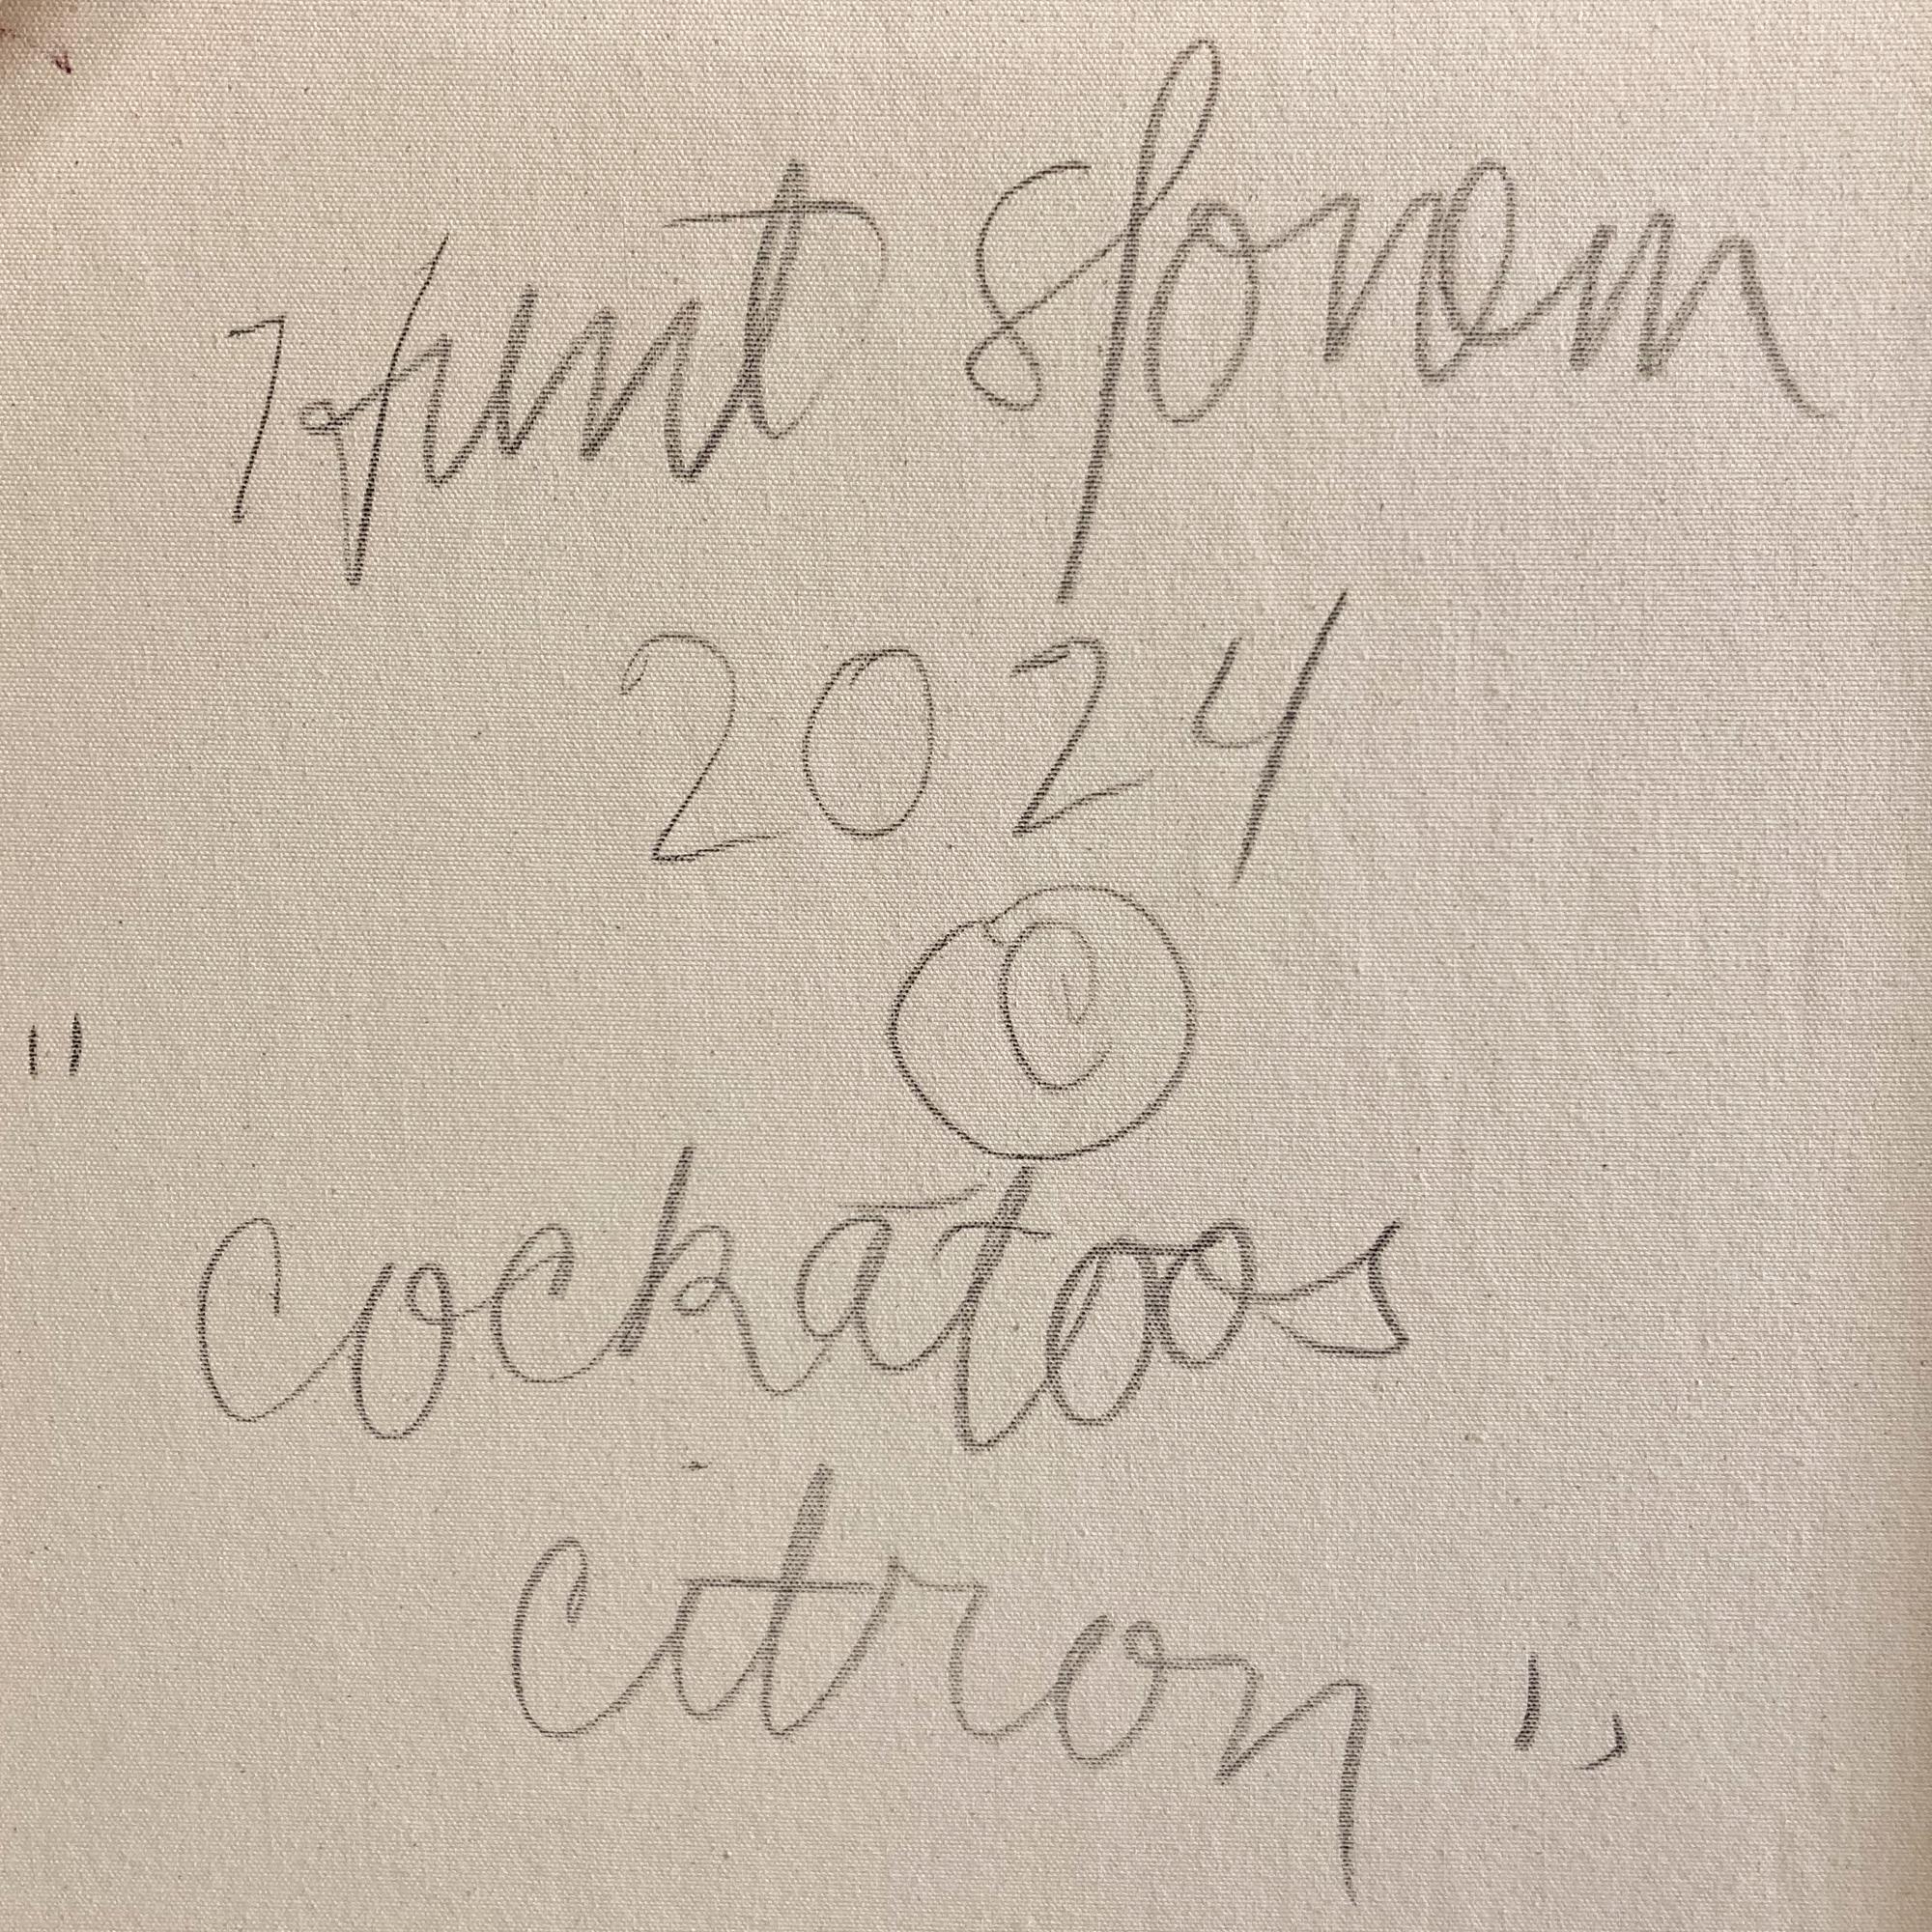 Hunt Slonem
2024
©
"Cockatoos
Citron"